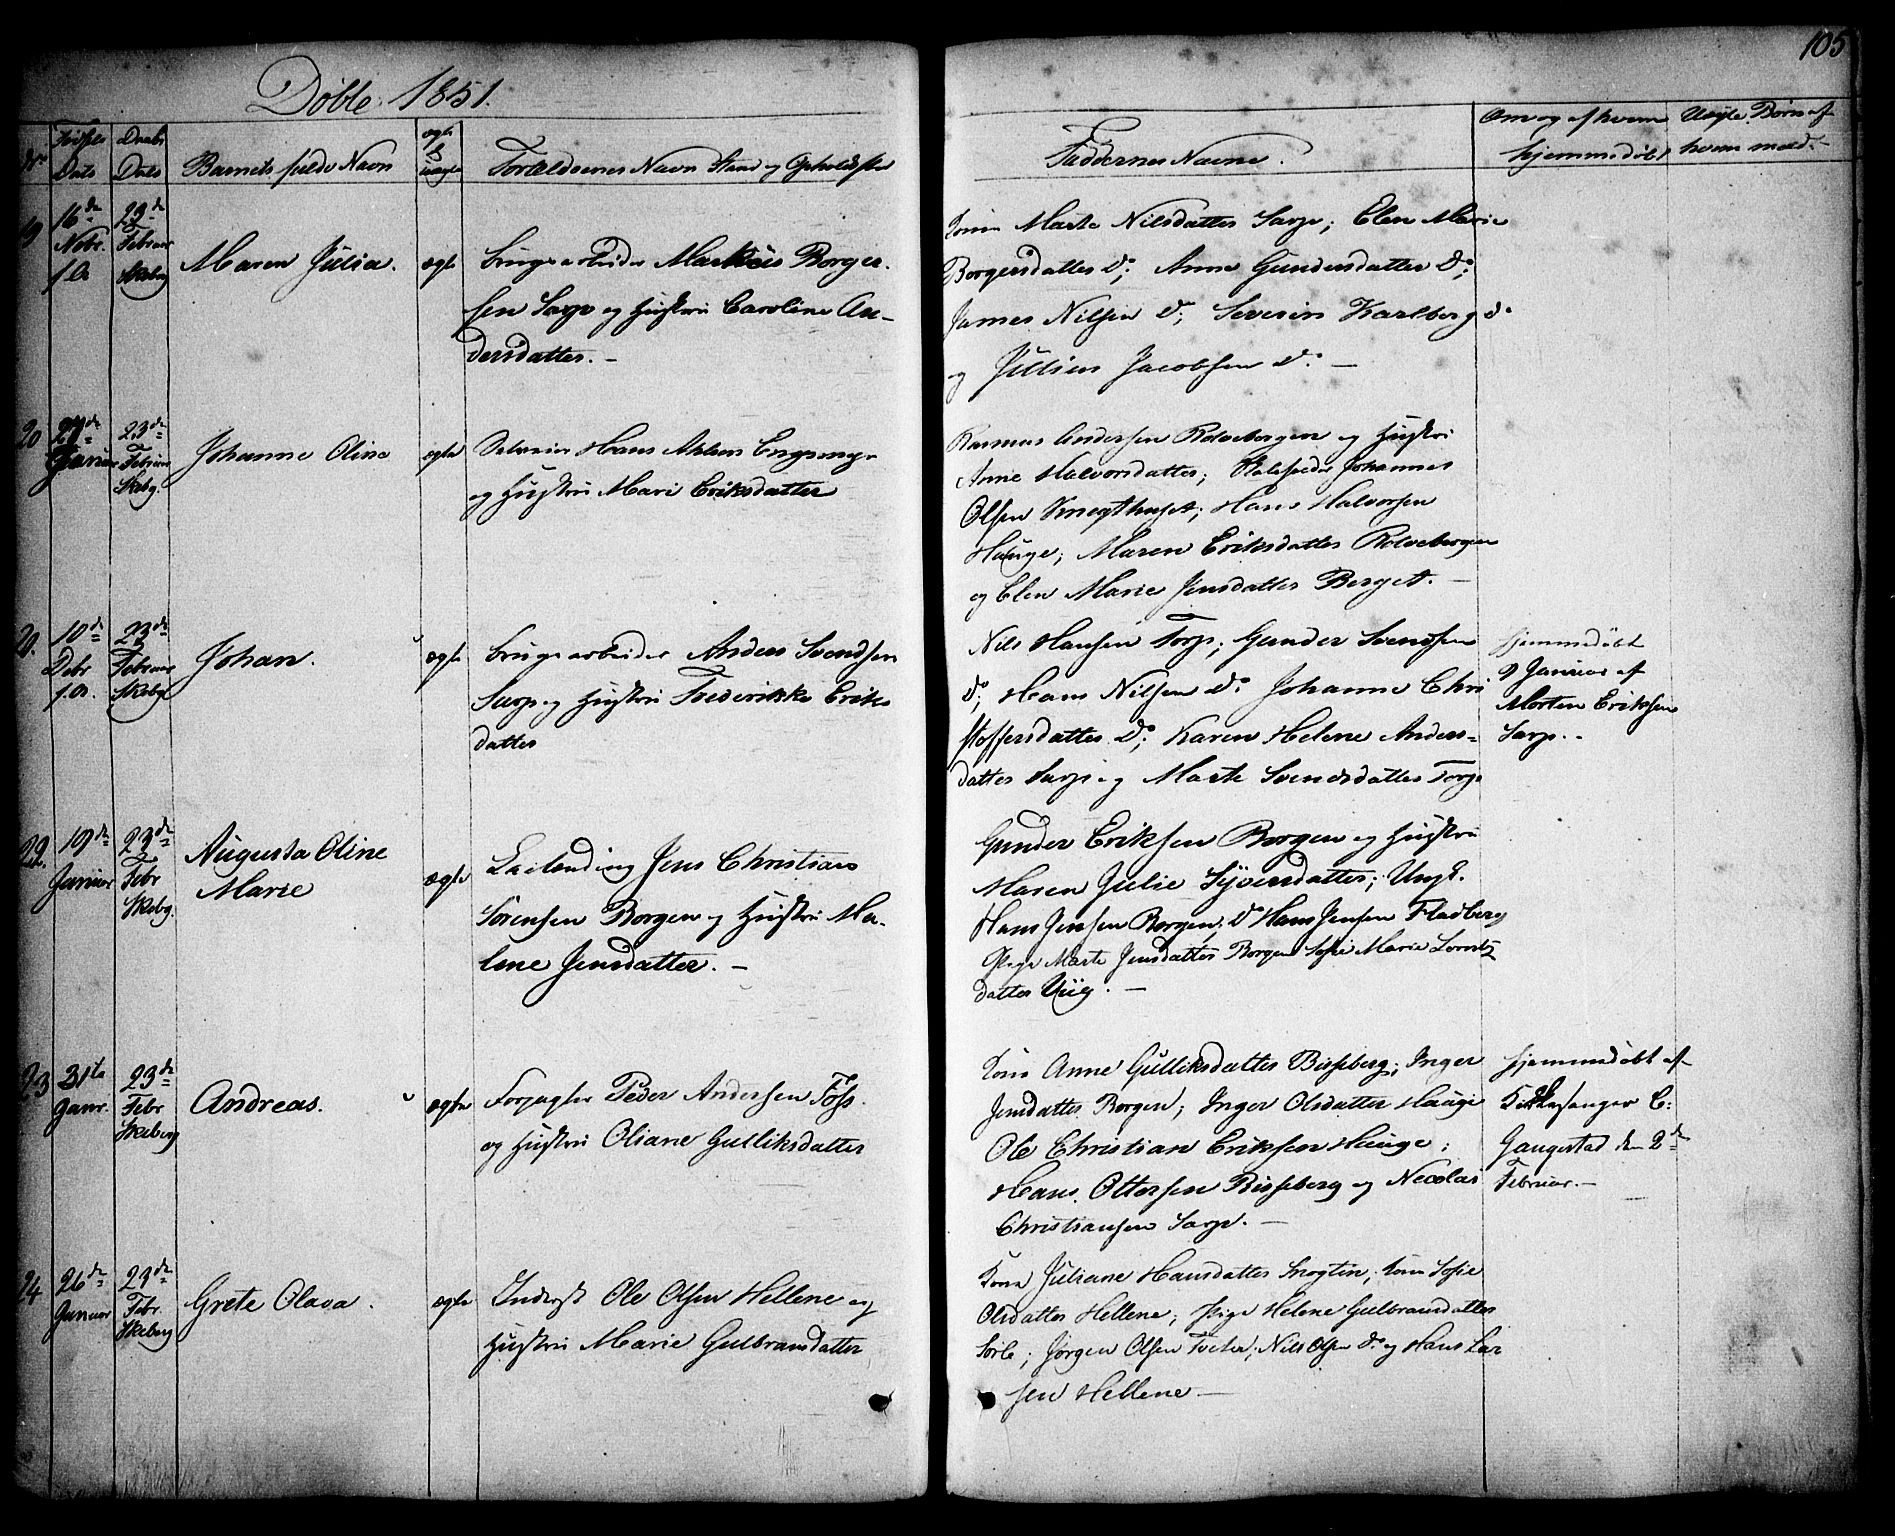 105
Døbte 1851.
No Fødsels Dato Daabs Dato Barnets fulde Navn ægte & uægte Forældrenes Navn Stand og Opholdsted
Faddernes Navne.
Om og af hvem hjemmedøbt
Uægte Børn af hvem med.
19 16de Novbr. f. A. 23de Februar Skebg
Maren Julia. ægte
Brugsarbeider Markus Borger-
sen Sarp og Hustru Caroline An-
dersdatter. —
Kone Marte Nilsdatter Sarp; Elen Marie
Borgersdatter do; Anne Gundersdatter do;
James Nilsen do; Severin Karlberg do
og Julius Jacobsen do. —
20 27de Januar 23de Februar Skebg.
Johanne Oline ægte
Selveier Hans
og Hustru Mari Eriksdatter
Rasmus Andersen Rolvsbergen og Hustru
Anne Halvorsdatter; Johannes
Olsen Knegthuset; Hans Halvorsen
Hauge; Maren Eriksdatter Rolvsbergen
og Elen Marie Jensdatter Berget. —
20. 10de Debr f. A. 23de Februar Skebg
Johan. ægte
Brugsarbeider Anders Svendsen
Sarp og Hustru Frederikke Eriks
datter
Nils Hansen Torp; Gunder Svendsen
do; Hans Nilsen do. Johanne Chri
stoffersdatter do; Karen Helene Anders=
datter Sarp og Marte Svendsdatter Torp
hjemmedøbt
9 Januar af
Morten Eriksen
Sarp. -
22. 19de Januar 23de Febr Skebg.
Augusta Oline
Marie ægte
Leilending Jens Christian
Sørensen Borgen og Hustru Ma-
lene Jensdatter. —
Gunder Eriksen Borgen og Hustru
Maren Julie Syversdatter; Ungk.
Hans Jensen Borgen; do Hans Jensen Fladberg
Pige Marte Jensdatter Borgen Sofie Marie Lorents
datter Viig. —
23 31te Janr. 23de Febr Skeberg
Andreas. ægte
Forpagter Peder Andersen Foss
og Hustru Oliane Gulliksdatter
Kone Anne Gulliksdatter Bisseberg; Inger
Jensdatter Borgen; Inger Olsdatter Hauge
Ole Christian Eriksen Hauge;
Hans Ottersen Bisseberg og Necolai
Christiansen Sarp. —
hjemmedøbt af
Kirkesanger C:
Gaugestad den 2de
Februar. —
24 26de Januar 23de Febr. Skeberg
Grete Olava. ægte
Inderst Ole Olsen Hellene og
Hustru Marie Gulbransdatter
Kone Juliane Hansdatter; Kone Sofie
Olsdatter Hellene; Pige Helene Gulbransdatter
Sørle; Jørgen Olsen Tveter; Nils Olsen do. og Hans Lar
sen Hellene —